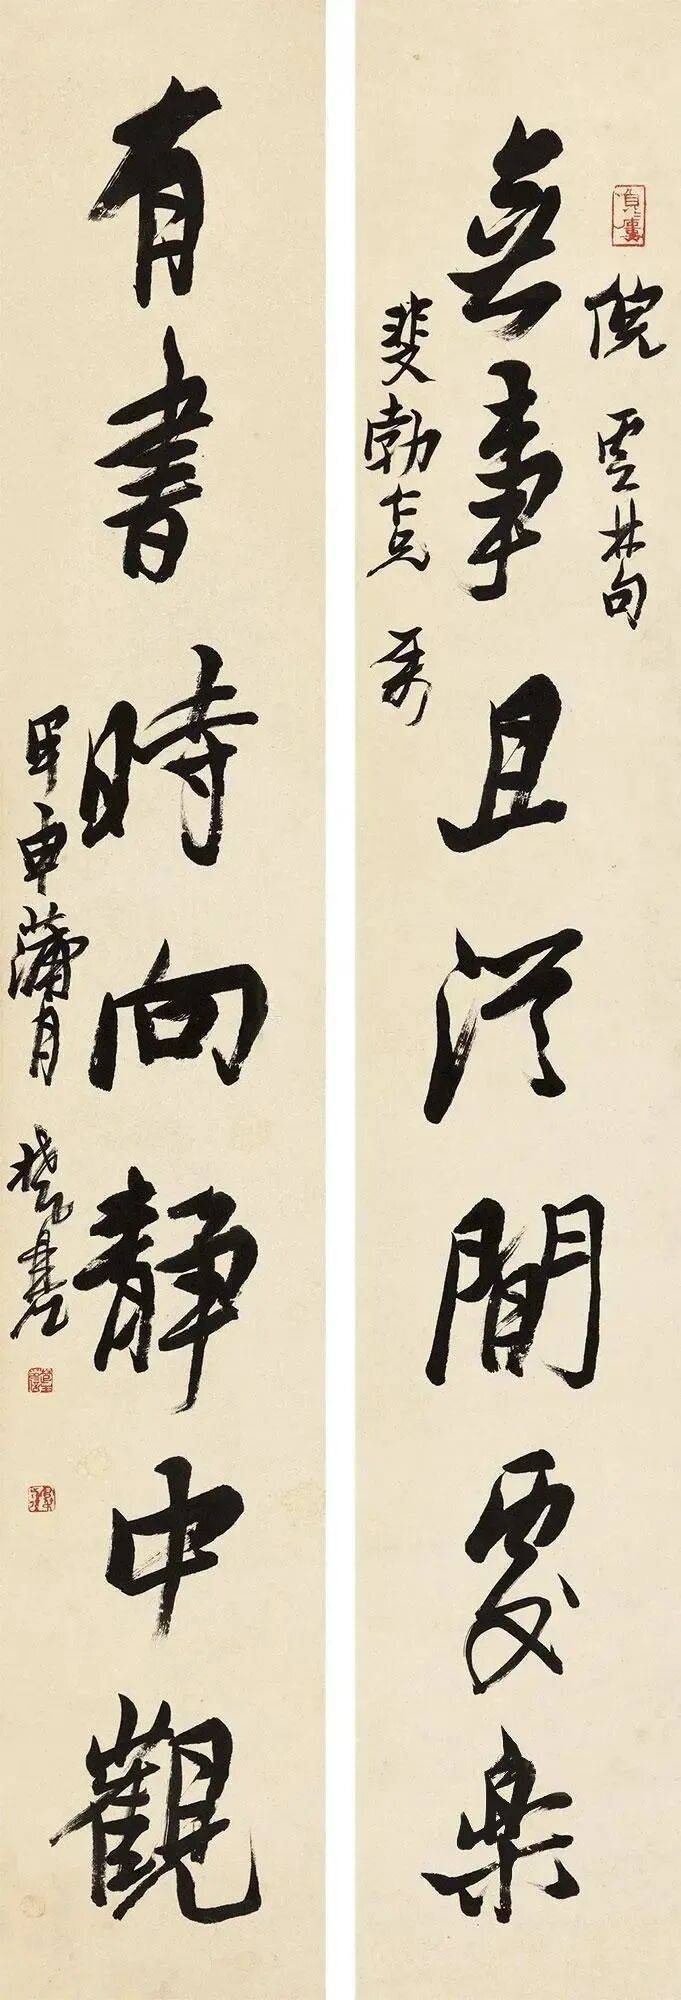 倪雲林句
無事且從閒處樂
斐勃七兄
有書時向靜中觀
甲申蒲月